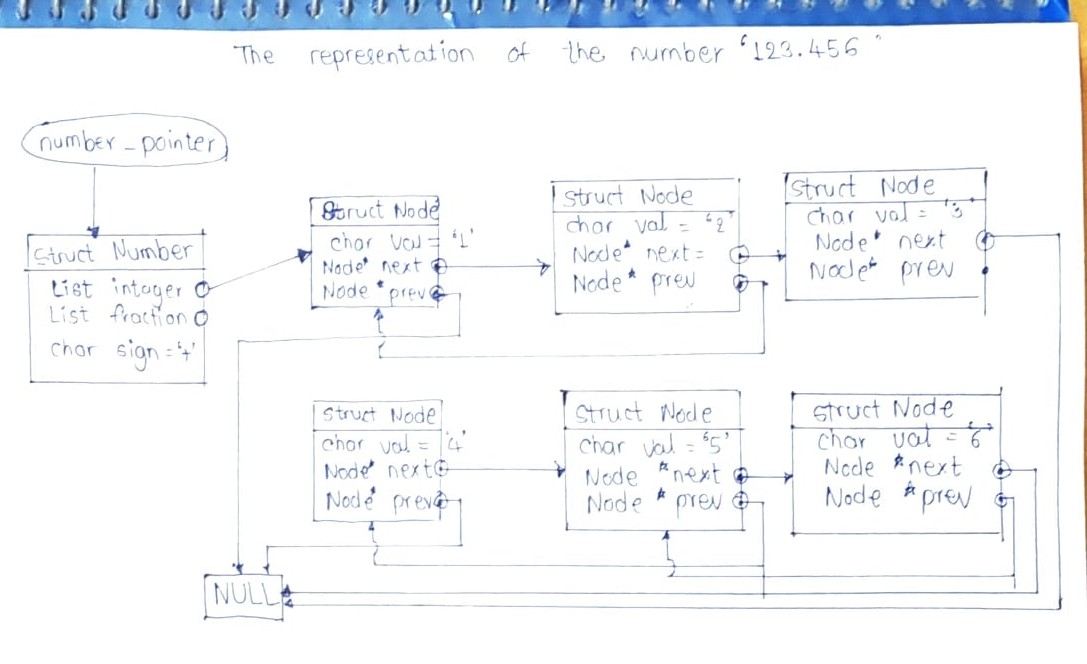 The representation of the number '123.456"
number_pointer
Struct Number
List intager
List fraction
char sign='+'
Struct Node
char val='1'
Node* next
Node *prev
Struct Node
char val = '2'
Node* next=
Node* prev
Struct Node
char val = '3'
Node* next
Node* prev
Struct Node
char val = '4'
Node* next
Node* prev
Struct Node
char val='5'
Node *next
Node * prev
Struct Node
char val = '6'
Node *next
Node *prev
NULL